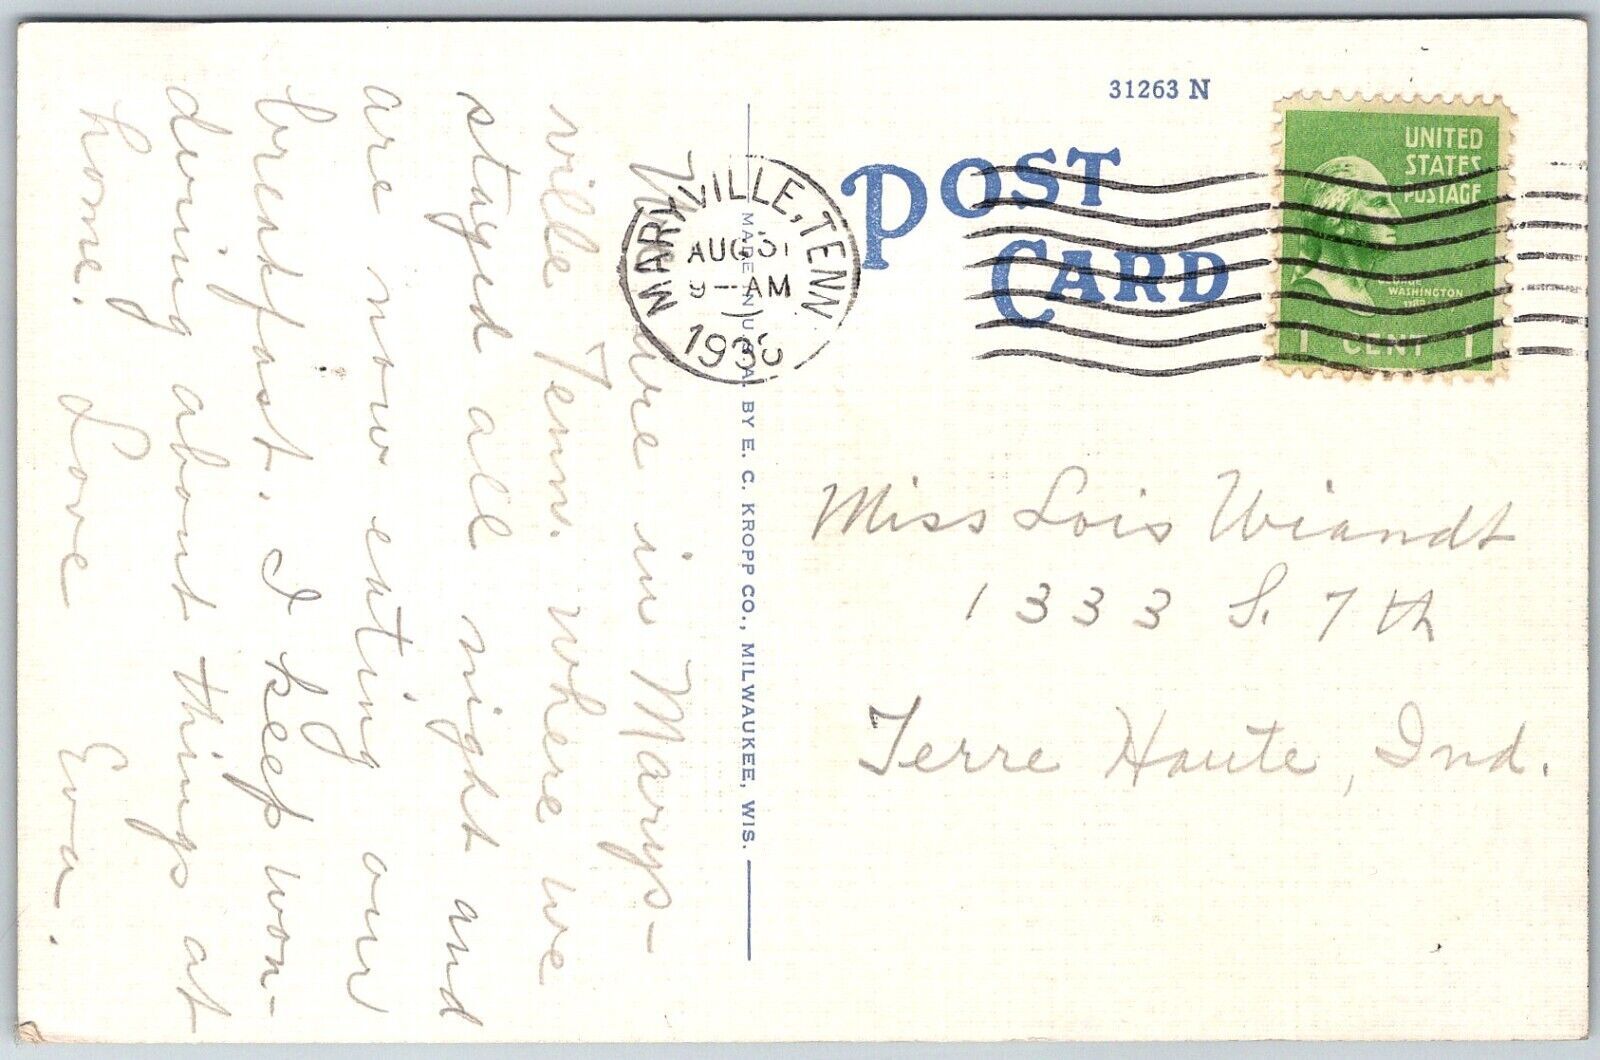 31263 N
POST CARD
UNITED
STATES
POSTAGE
WASHINGTON
1 CENT 1
MARYVILLE, TENN
AUG 31
9-AM
MADE IN U.S.A. BY E. C. KROPP CO., MILWAUKEE, WIS.
We are in Marys-
ville Tenn. where we
stayed all night and
are now eating our
breakfast. I keep won-
dering about things at
home.
Love Eva.
Miss Lois Wiandt
1333 S. 7th
Terre Haute, Ind.